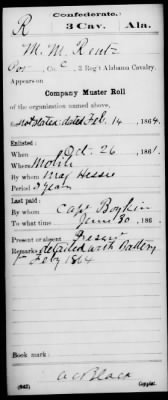 Confederate.
R 3 Cav. Ala.
M. M. Rentz
Co. C, 3 Reg't Alabama Cavalry.
Appears on
Company Muster Roll
of the organization named above,
for not stated dated Feb. 14, 1864.
Enlisted:
When Oct. 26, 1861.
Where Mobile
By whom Maj Hessee
Period 3 years
Last paid:
By whom Capt Boykin
To what time June 30, 186
Present or absent Present
Remarks: detailed with Battery
1st Feby 1864
Book mark:
(642) A C Black
Copyist.